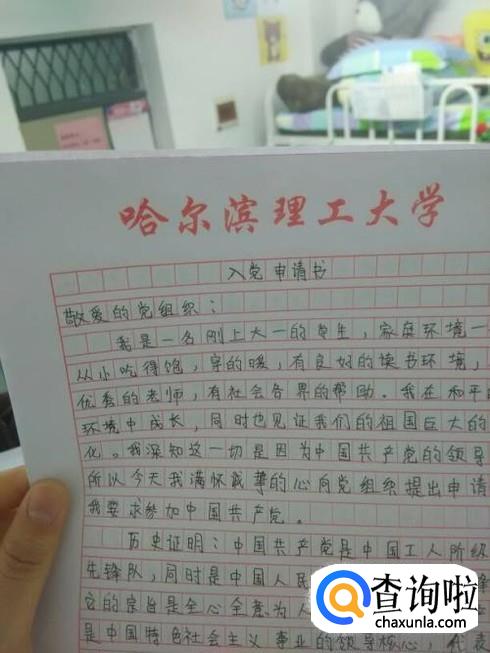 哈尔滨理工大学
入党申请书
敬爱的党组织：
我是一名刚上大一的学生，家庭环境一
从小吃得饱，穿的暖，有良好的读书环境，
优秀的老师，有社会各界的帮助。我在和平的
环境中成长，同时也见证我们的祖国巨大的
化。我深知这一切是因为中国共产党的领导
所以今天我满怀诚挚的心向党组织提出申请
我要求参加中国共产党。
历史证明：中国共产党是中国工人阶级
先锋队，同时是中国人民
它的宗旨是全心全意为人
是中国特色社会主义事业的领导核心，代表
查询啦
chaxunla.com